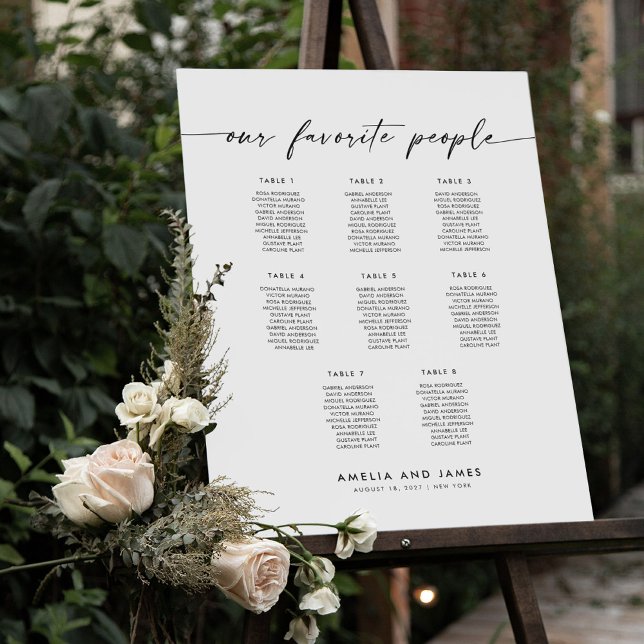 our favorite people
TABLE 1
ROSA RODRIGUEZ
DONATELLA MURANO
VICTOR MURANO
GABRIEL ANDERSON
DAVID ANDERSON
MIGUEL RODRIGUEZ
MICHELLE JEFFERSON
ANNABELLE LEE
GUSTAVE PLANT
CAROLINE PLANT
TABLE 2
GABRIEL ANDERSON
ANNABELLE LEE
GUSTAVE PLANT
CAROLINE PLANT
DAVID ANDERSON
MIGUEL RODRIGUEZ
ROSA RODRIGUEZ
DONATELLA MURANO
VICTOR MURANO
MICHELLE JEFFERSON
TABLE 3
DAVID ANDERSON
MICHELLE JEFFERSON
MIGUEL RODRIGUEZ
ROSA RODRIGUEZ
GABRIEL ANDERSON
CAROLINE PLANT
ANNABELLE LEE
GUSTAVE PLANT
DONATELLA MURANO
VICTOR MURANO
TABLE 4
DONATELLA MURANO
VICTOR MURANO
MICHELLE JEFFERSON
ROSA RODRIGUEZ
GUSTAVE PLANT
CAROLINE PLANT
GABRIEL ANDERSON
DAVID ANDERSON
MIGUEL RODRIGUEZ
ANNABELLE LEE
TABLE 5
GABRIEL ANDERSON
DAVID ANDERSON
VICTOR MURANO
DONATELLA MURANO
MICHELLE JEFFERSON
MIGUEL RODRIGUEZ
ROSA RODRIGUEZ
ANNABELLE LEE
GUSTAVE PLANT
CAROLINE PLANT
TABLE 6
DONATELLA MURANO
VICTOR MURANO
MICHELLE JEFFERSON
GABRIEL ANDERSON
DAVID ANDERSON
MIGUEL RODRIGUEZ
ROSA RODRIGUEZ
ANNABELLE LEE
GUSTAVE PLANT
CAROLINE PLANT
TABLE 7
GABRIEL ANDERSON
DAVID ANDERSON
MIGUEL RODRIGUEZ
DONATELLA MURANO
VICTOR MURANO
MICHELLE JEFFERSON
ROSA RODRIGUEZ
ANNABELLE LEE
GUSTAVE PLANT
CAROLINE PLANT
TABLE 8
ROSA RODRIGUEZ
DONATELLA MURANO
VICTOR MURANO
GABRIEL ANDERSON
DAVID ANDERSON
MIGUEL RODRIGUEZ
MICHELLE JEFFERSON
ANNABELLE LEE
GUSTAVE PLANT
CAROLINE PLANT
AMELIA AND JAMES
AUGUST 18, 2027 | NEW YORK